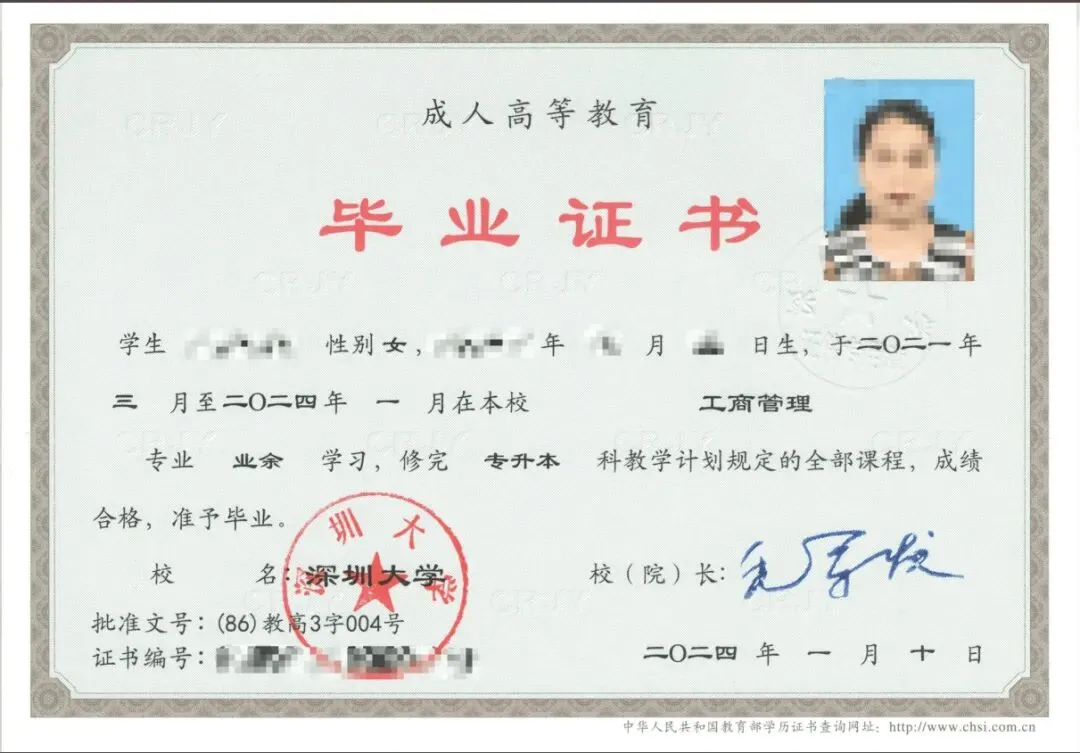 成人高等教育
毕业证书
学生 性别女, 年 月 日生，于二〇二一年
三 月至二〇二四年 一 月在本校 工商管理
专业 业余 学习，修完 专升本 科教学计划规定的全部课程，成绩
合格，准予毕业。
校 名：深圳大学
深圳大学
校（院）长：
批准文号：(86)教高3字004号
证书编号：
二〇二四 年 一 月 十 日
中华人民共和国教育部学历证书查询网址：http://www.chsi.com.cn
CRJY CRJY CRJY
CRJY CRJY CRJY
CRJY CRJY CRJY
CRJY CRJY